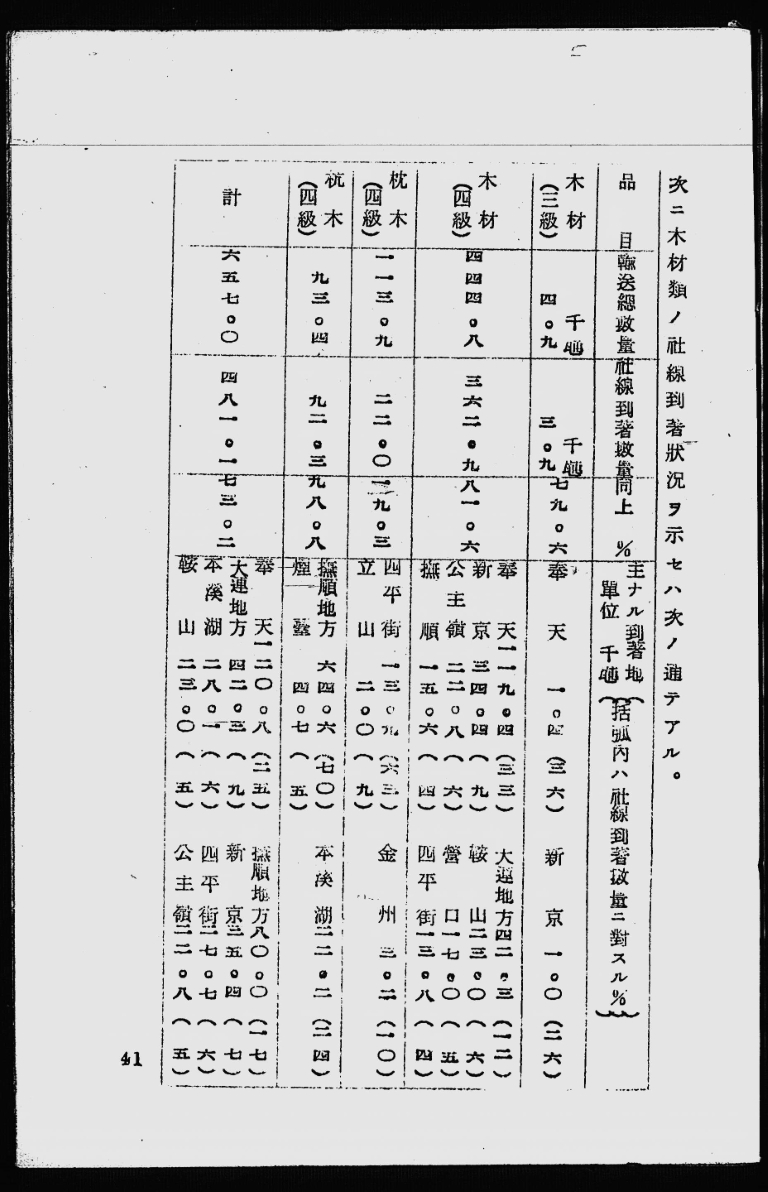 次ニ木材類ノ社線到著狀況ヲ示セハ次ノ通テアル。
品目
輸送總數量
社線到著數量
同上 %
主ナル到著地
單位 千噸
(括弧內ハ社線到著數量ニ對スル%)
木材
(三級)
千噸
四。九
千噸
三。九
七九。六
奉天 一。四 (三六) 新京 一。〇 (二六)
木材
(四級)
四四四。八
三六二。九
八一。六
奉天 一一九。四 (三三) 大連地方 四二。三 (一二)
新京 三四。四 (九) 鞍山 二三。〇 (六)
公主嶺 二二。八 (六) 營口 一七。〇 (五)
撫順 一五。六 (四) 四平街 一三。八 (四)
枕木
(四級)
一一三。九
二二。〇
一九。三
四平街 一三。九 (六三) 金州 二。二 (一〇)
立山 二。〇 (九)
杭木
(四級)
九三。四
九二。三
九八。八
撫順地方 六四。六 (七〇) 本溪湖 二二。二 (二四)
煙臺 四。七 (五)
計
六五七。〇
四八一。一
七三。二
奉天 一二〇。八 (二五) 撫順地方 八〇。〇 (一七)
大連地方 四二。三 (九) 新京 三五。四 (七)
本溪湖 二八。一 (六) 四平街 二七。七 (六)
鞍山 二三。〇 (五) 公主嶺 二二。八 (五)
41